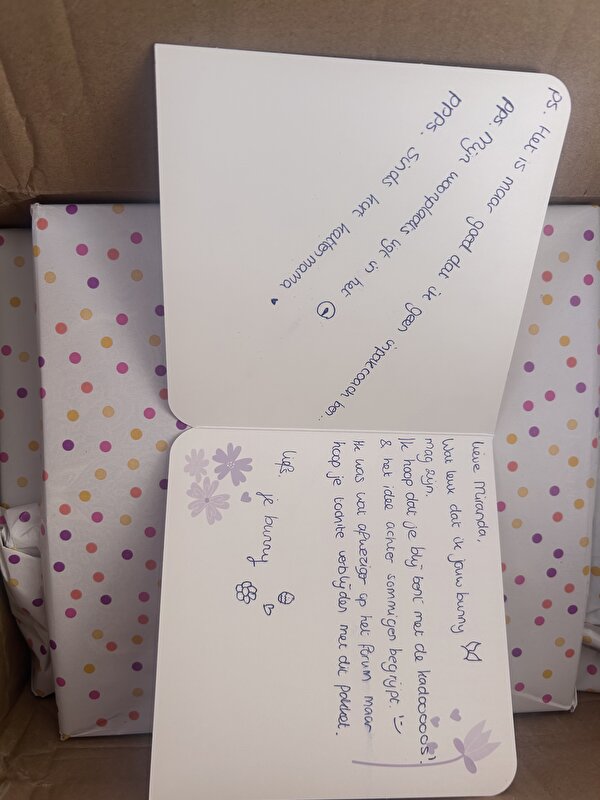 Lieve Miranda,
Wat leuk dat ik jouw bunny
mag zijn.
Ik hoop dat je blij bent met de kadooooos!
& het idee achter sommigen begrijpt. :-)
Ik was wat afwezig op het forum maar
hoop je toch te verblijden met dit pakket.
liefs,
je bunny
ps. Het is maar goed dat ik geen inpakcoach ben..
pps. Mijn woonplaats ligt in het
ppps. Sinds kort kattenmama